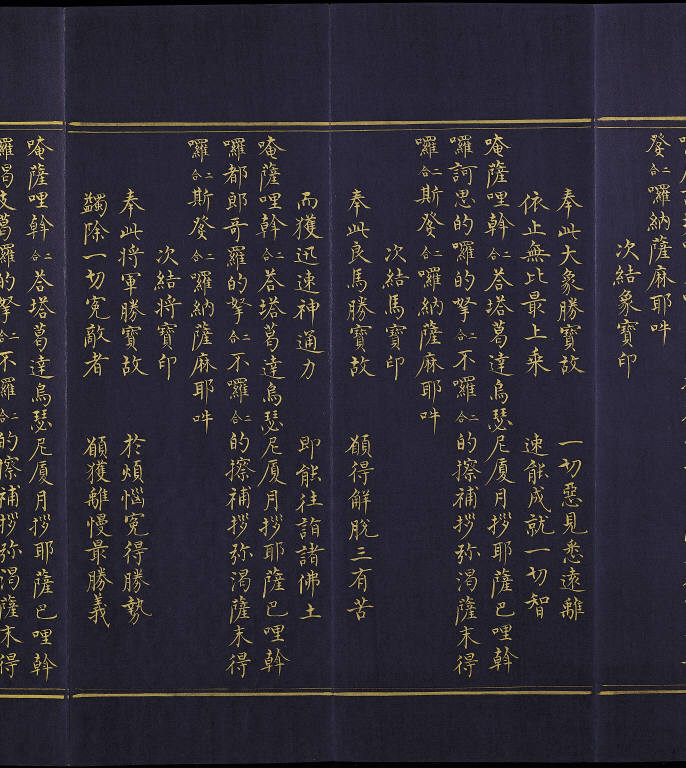 癹二合囉納薩麻耶吽
次結象寶印
奉此大象勝寶故 一切惡見悉遠離
依止無比最上乘 速能成就一切智
唵薩哩斡二合荅塔葛達烏瑟尼厦月拶耶薩巴哩斡
囉訶思的囉的拏二合不囉二合的擦補拶弥渴薩末得
囉二合斯癹二合囉納薩麻耶吽
次結馬寶印
奉此良馬勝寶故 願得解脫三有苦
而獲迅速神通力 即能往詣諸佛土
唵薩哩斡二合荅塔葛達烏瑟尼厦月拶耶薩巴哩斡
囉都郎哥羅的拏二合不羅二合的擦補拶弥渴薩末得
囉二合斯癹二合囉納薩麻耶吽
次結將寶印
奉此將軍勝寶故 於煩惱寃得勝勢
蠲除一切寃敵者 願獲離慢最勝義
唵薩哩斡二合荅塔葛達烏瑟尼厦月拶耶薩巴哩斡